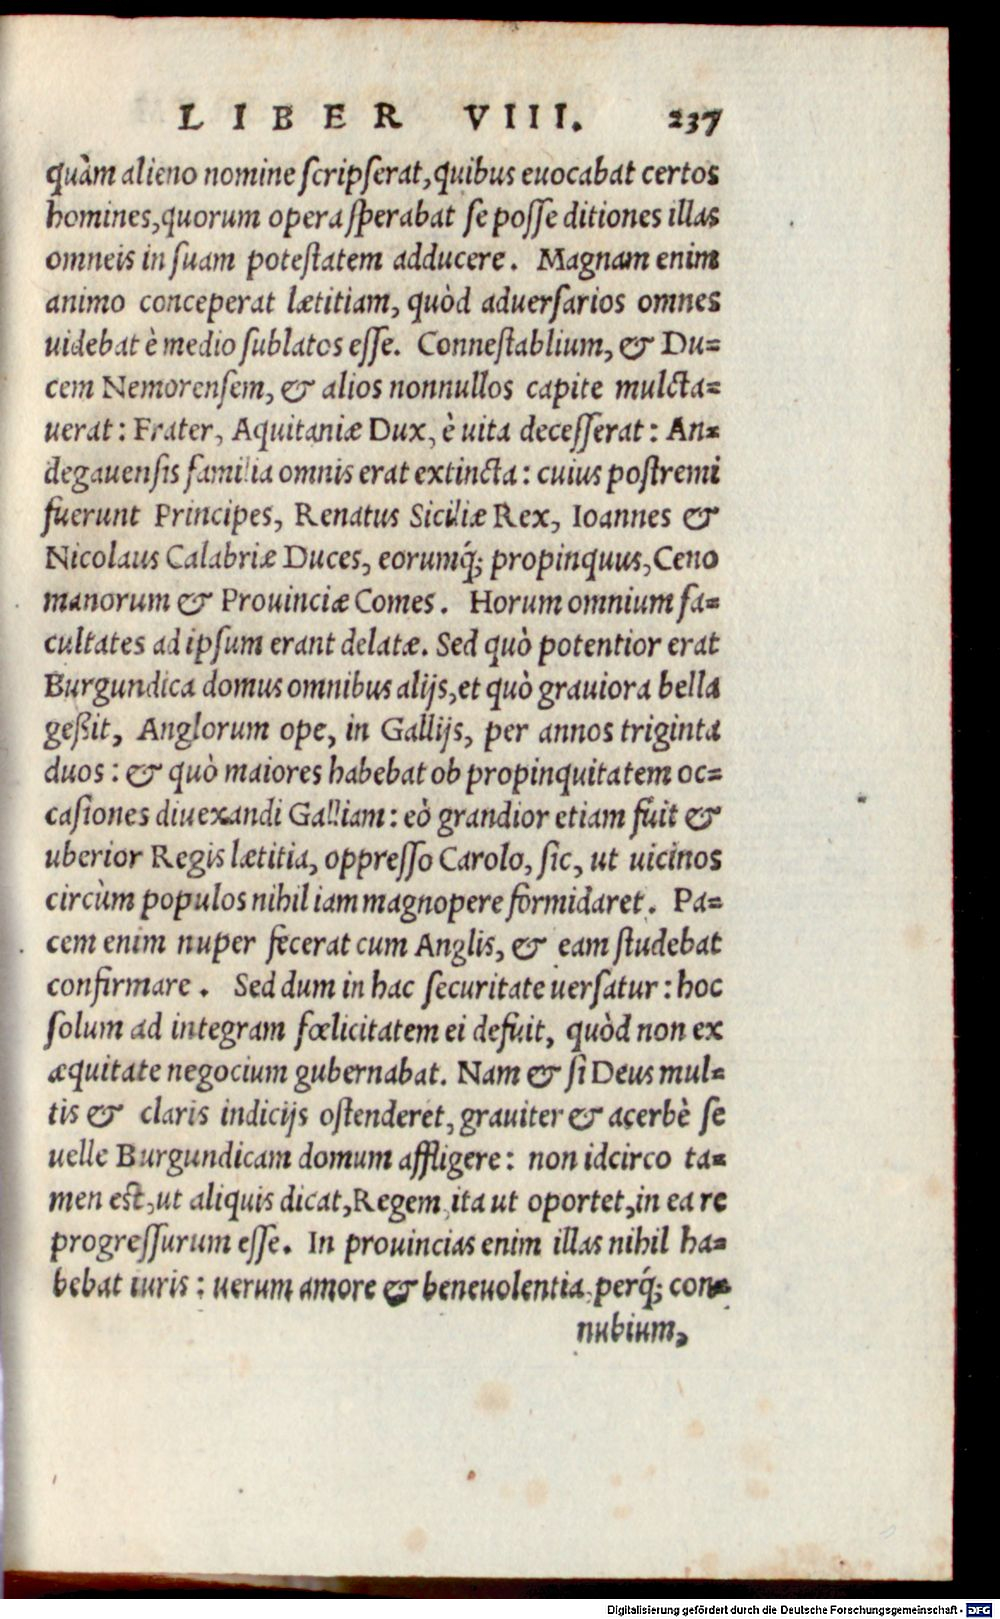 LIBER VIII. 237
quàm alieno nomine scripserat, quibus euocabat certos
homines, quorum opera sperabat se posse ditiones illas
omneis in suam potestatem adducere. Magnam enim
animo conceperat lætitiam, quòd aduersarios omnes
uidebat è medio sublatos esse. Connestablium, & Du=
cem Nemorensem, & alios nonnullos capite mulcta=
uerat: Frater, Aquitaniæ Dux, è uita decesserat: An=
degauensis familia omnis erat extincta: cuius postremi
fuerunt Principes, Renatus Siciliæ Rex, Ioannes &
Nicolaus Calabriæ Duces, eorumq́; propinquus, Ceno
manorum & Prouinciæ Comes. Horum omnium fa=
cultates ad ipsum erant delatæ. Sed quò potentior erat
Burgundica domus omnibus alijs, et quò grauiora bella
geßit, Anglorum ope, in Gallijs, per annos triginta
duos: & quò maiores habebat ob propinquitatem oc=
casiones diuexandi Galliam: eò grandior etiam fuit &
uberior Regis lætitia, oppresso Carolo, sic, ut uicinos
circùm populos nihil iam magnopere formidaret. Pa=
cem enim nuper fecerat cum Anglis, & eam studebat
confirmare. Sed dum in hac securitate uersatur: hoc
solum ad integram fœlicitatem ei defuit, quòd non ex
æquitate negocium gubernabat. Nam & si Deus mul=
tis & claris indicijs ostenderet, grauiter & acerbè se
uelle Burgundicam domum affligere: non idcirco ta=
men est, ut aliquis dicat, Regem, ita ut oportet, in ea re
progressurum esse. In prouincias enim illas nihil ha=
bebat iuris: uerum amore & beneuolentia, perq́; con=
nubium,
Digitalisierung gefördert durch die Deutsche Forschungsgemeinschaft - DFG